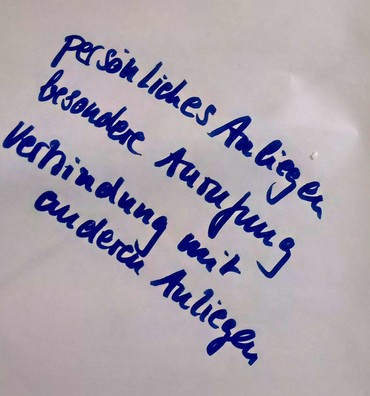 persönliches Anliegen
besondere Anrufung
Verbindung mit
anderen Anliegen